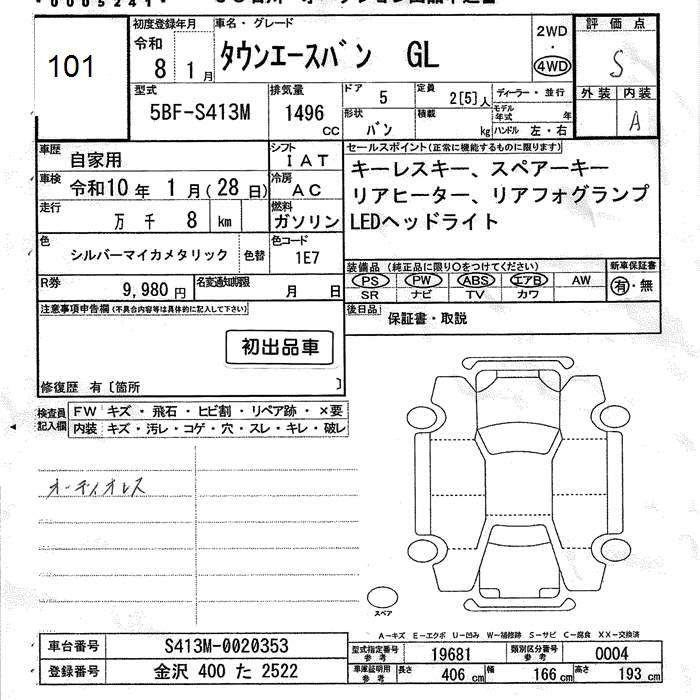 101
初度登録年月
令和
8 1月
車名・グレード
タウンエースバン GL
2WD
・
4WD
評価点
S
外装 内装
A
型式
5BF-S413M
排気量
1496
CC
ドア 5
定員 2[5]人
ディーラー・並行
形状
バン
積載 kg
モデル年式 年
ハンドル 左・右
車歴 自家用
シフト
IAT
車検 令和10年 1月(28日)
冷房
AC
走行 万 千 8 km
燃料
ガソリン
色
シルバーマイカメタリック
色替
色コード
1E7
R券 9,980円
名変通知期限 月 日
セールスポイント(正常に機能するものに限ります)
キーレスキー、スペアーキー
リアヒーター、リアフォグランプ
LEDヘッドライト
装備品(純正品に限り○をつけてください)
PS PW ABS エアB AW
SR ナビ TV カワ
新車保証書
有・無
後日品
保証書・取説
注意事項申告欄(不具合内容等は具体的に記入して下さい)
初出品車
修復歴 有〔箇所 〕
検査員記入欄
FW キズ・飛石・ヒビ割・リペア跡・×要
内装 キズ・汚レ・コゲ・穴・スレ・キレ・破レ
オーディオレス
スペア
A-キズ E-エクボ U-凹み W-補修跡 S-サビ C-腐食 XX-交換済
車台番号 S413M-0020353
登録番号 金沢 400 た 2522
型式指定番号 参考 19681
類別区分番号 参考 0004
車庫証明用 参考
長さ 406 cm
幅 166 cm
高さ 193 cm